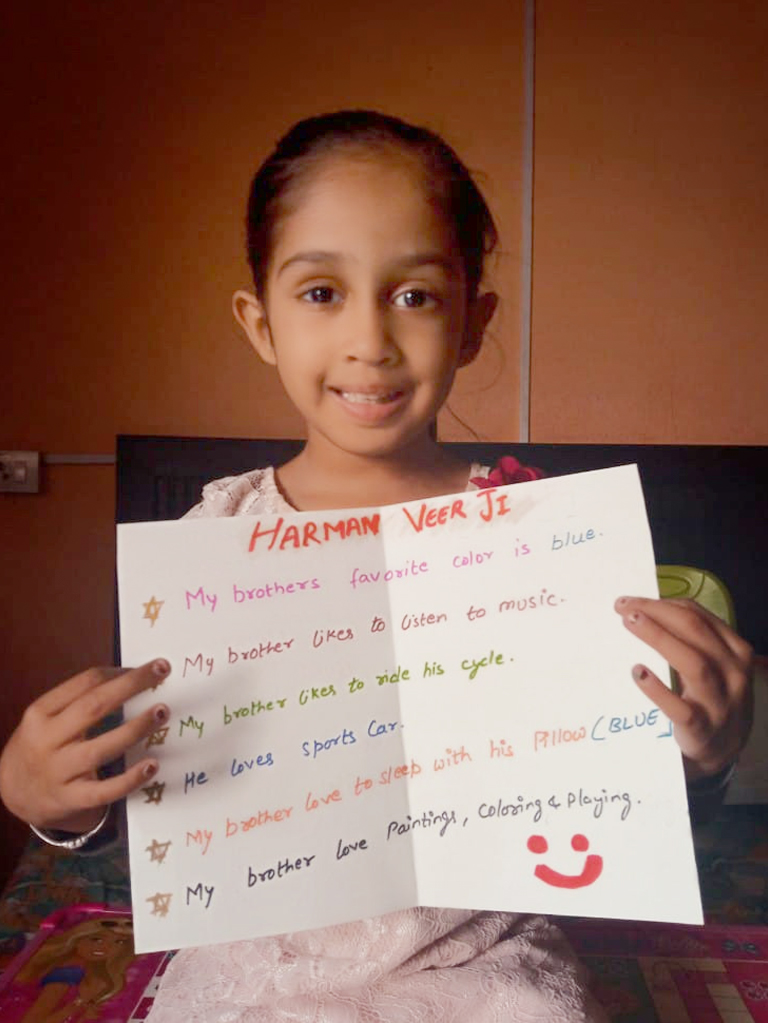 HARMAN VEER JI
My brothers favorite color is blue.
My brother likes to listen to music.
My brother likes to ride his cycle.
He loves sports Car.
My brother love to sleep with his Pillow (BLUE)
My brother love Paintings, Coloring & Playing.